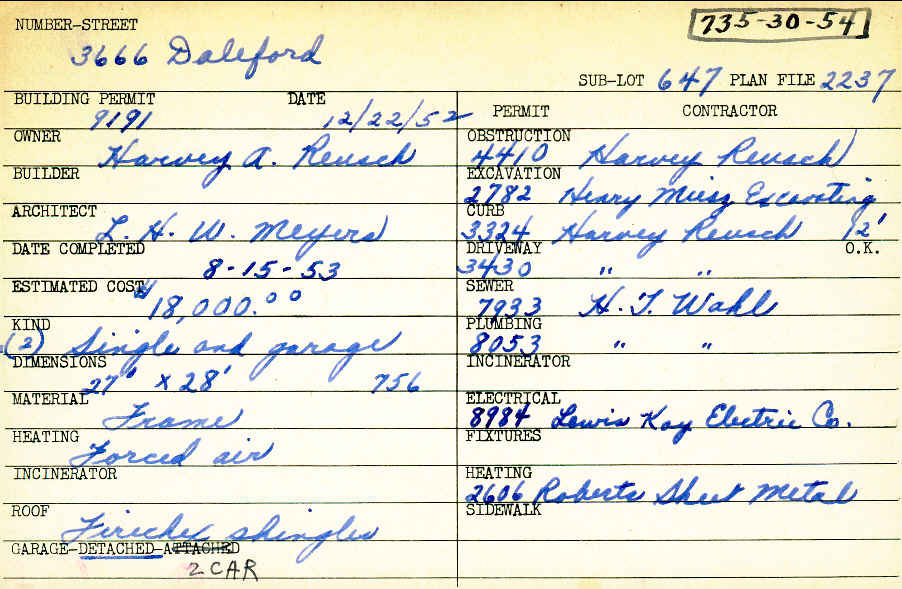 NUMBER-STREET
735-30-54
3666 Daleford
SUB-LOT 647 PLAN FILE 2237
BUILDING PERMIT DATE
9191 12/22/52
OWNER
Harvey A. Reusch
BUILDER
ARCHITECT
L. H. W. Meyers
DATE COMPLETED
8-15-53
ESTIMATED COST
$18,000.00
KIND
(2) Single and garage
DIMENSIONS
27' x 28' 756
MATERIAL
Frame
HEATING
Forced air
INCINERATOR
ROOF
shingles
GARAGE-DETACHED-ATTACHED
2 CAR
PERMIT CONTRACTOR
OBSTRUCTION
4410 Harvey Reusch
EXCAVATION
2782 Henry Miesz Excavating
CURB
3324 Harvey Reusch 12'
DRIVEWAY O.K.
3430 " "
SEWER
7933 H. T. Wahl
PLUMBING
8053 " "
INCINERATOR
ELECTRICAL
8984 Lewis Kay Electric Co.
FIXTURES
HEATING
2606 Roberts Sheet Metal
SIDEWALK